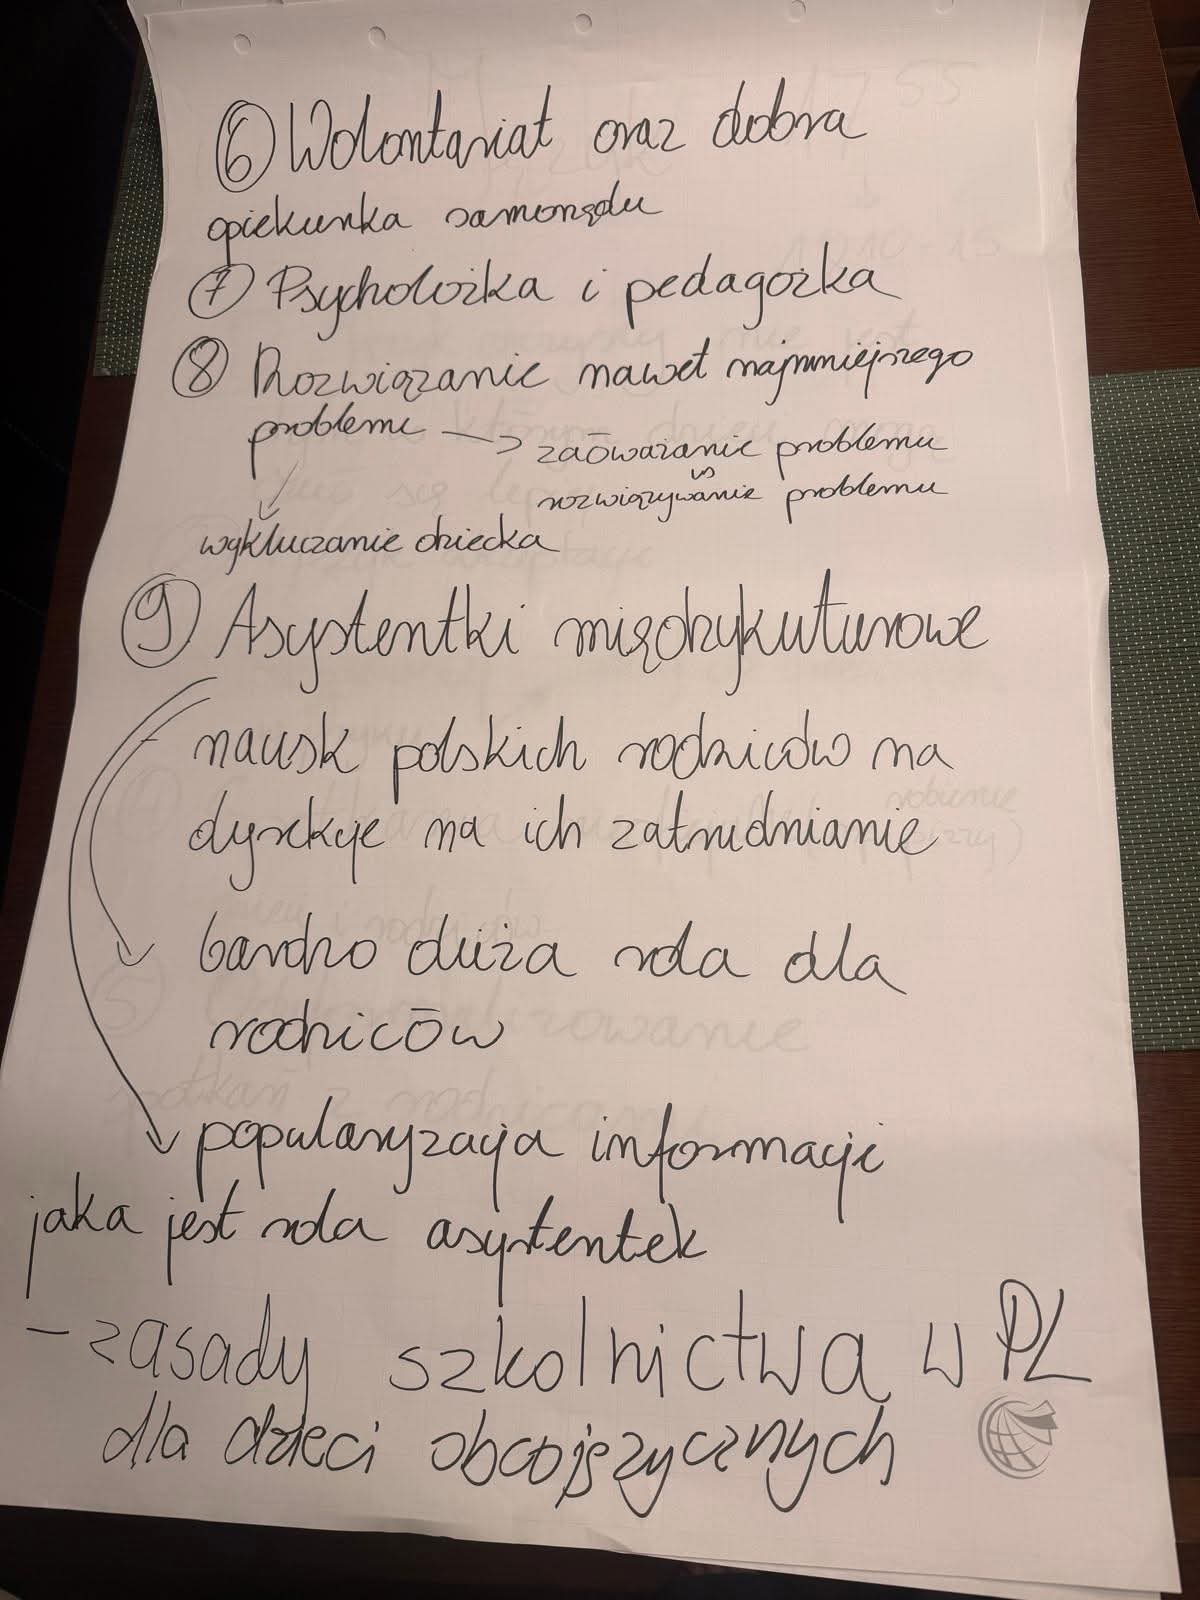 6 Wolontariat oraz dobra
opiekunka samorządu
7 Psycholożka i pedagożka
8 Rozwiązanie nawet najmniejszego
problemu → zaōważanie problemu
vs
rozwiązywanie problemu
wykluczanie dziecka
9 Asystentki międzykuturowe
- nacisk polskich rodziców na
dyrekcje na ich zatrudnianie
bardzo duża rola dla
rodziców
popularyzacja informacji
jaka jest rola asystentek
- zasady szkolnictwa w PL
dla dzieci obcojęzycznych